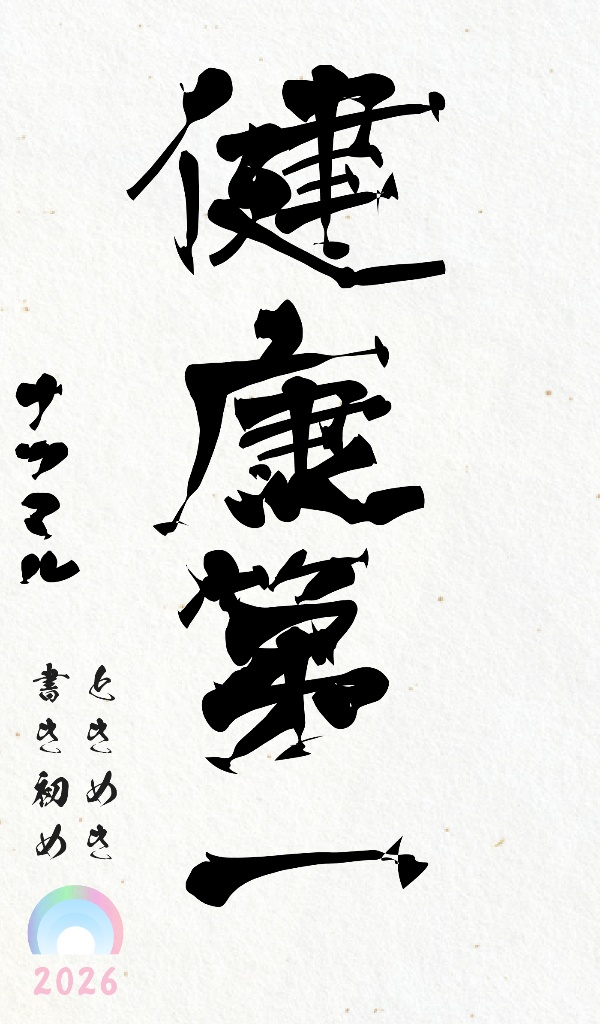 健康第一
ナツマル
ときめき
書き初め
2026